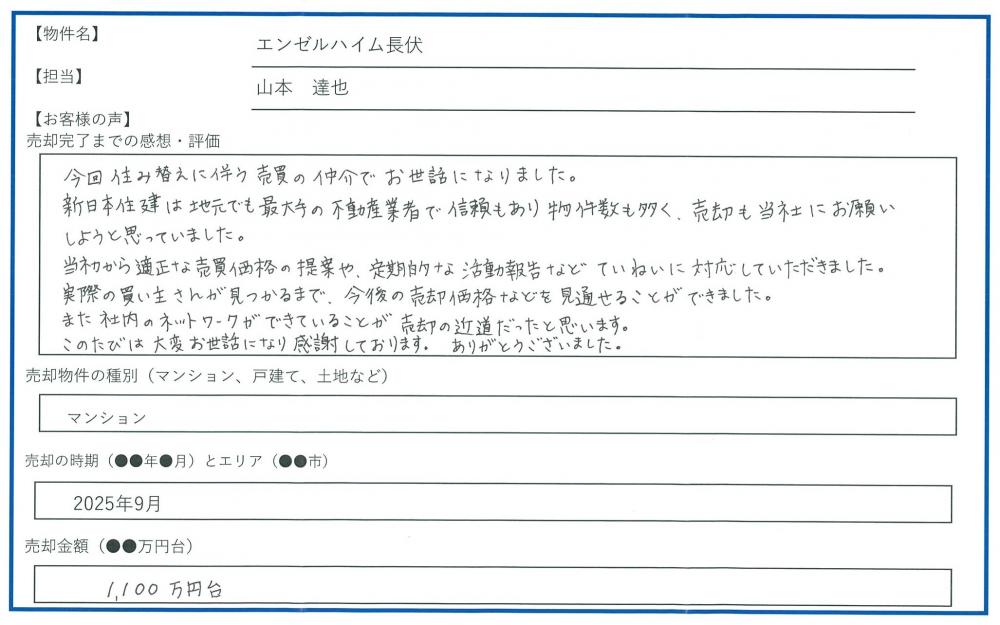 【物件名】
エンゼルハイム長伏
【担当】
山本　達也
【お客様の声】
売却完了までの感想・評価
今回 住み替えに伴う 売買の 仲介で お世話になりました。
新日本住建は地元でも最大手の不動産業者で信頼もあり物件数も多く、売却も当社にお願い
しようと思っていました。
当初から適正な売買価格の提案や、定期的な活動報告などていねいに対応していただきました。
実際の買い主さんが見つかるまで、今後の売却価格などを見通せることができました。
また社内のネットワークができていることが売却の近道だったと思います。
このたびは大変お世話になり感謝しております。 ありがとうございました。
売却物件の種別（マンション、戸建て、土地など）
マンション
売却の時期（●●年●月）とエリア（●●市）
2025年9月
売却金額（●●万円台）
1,100 万円台